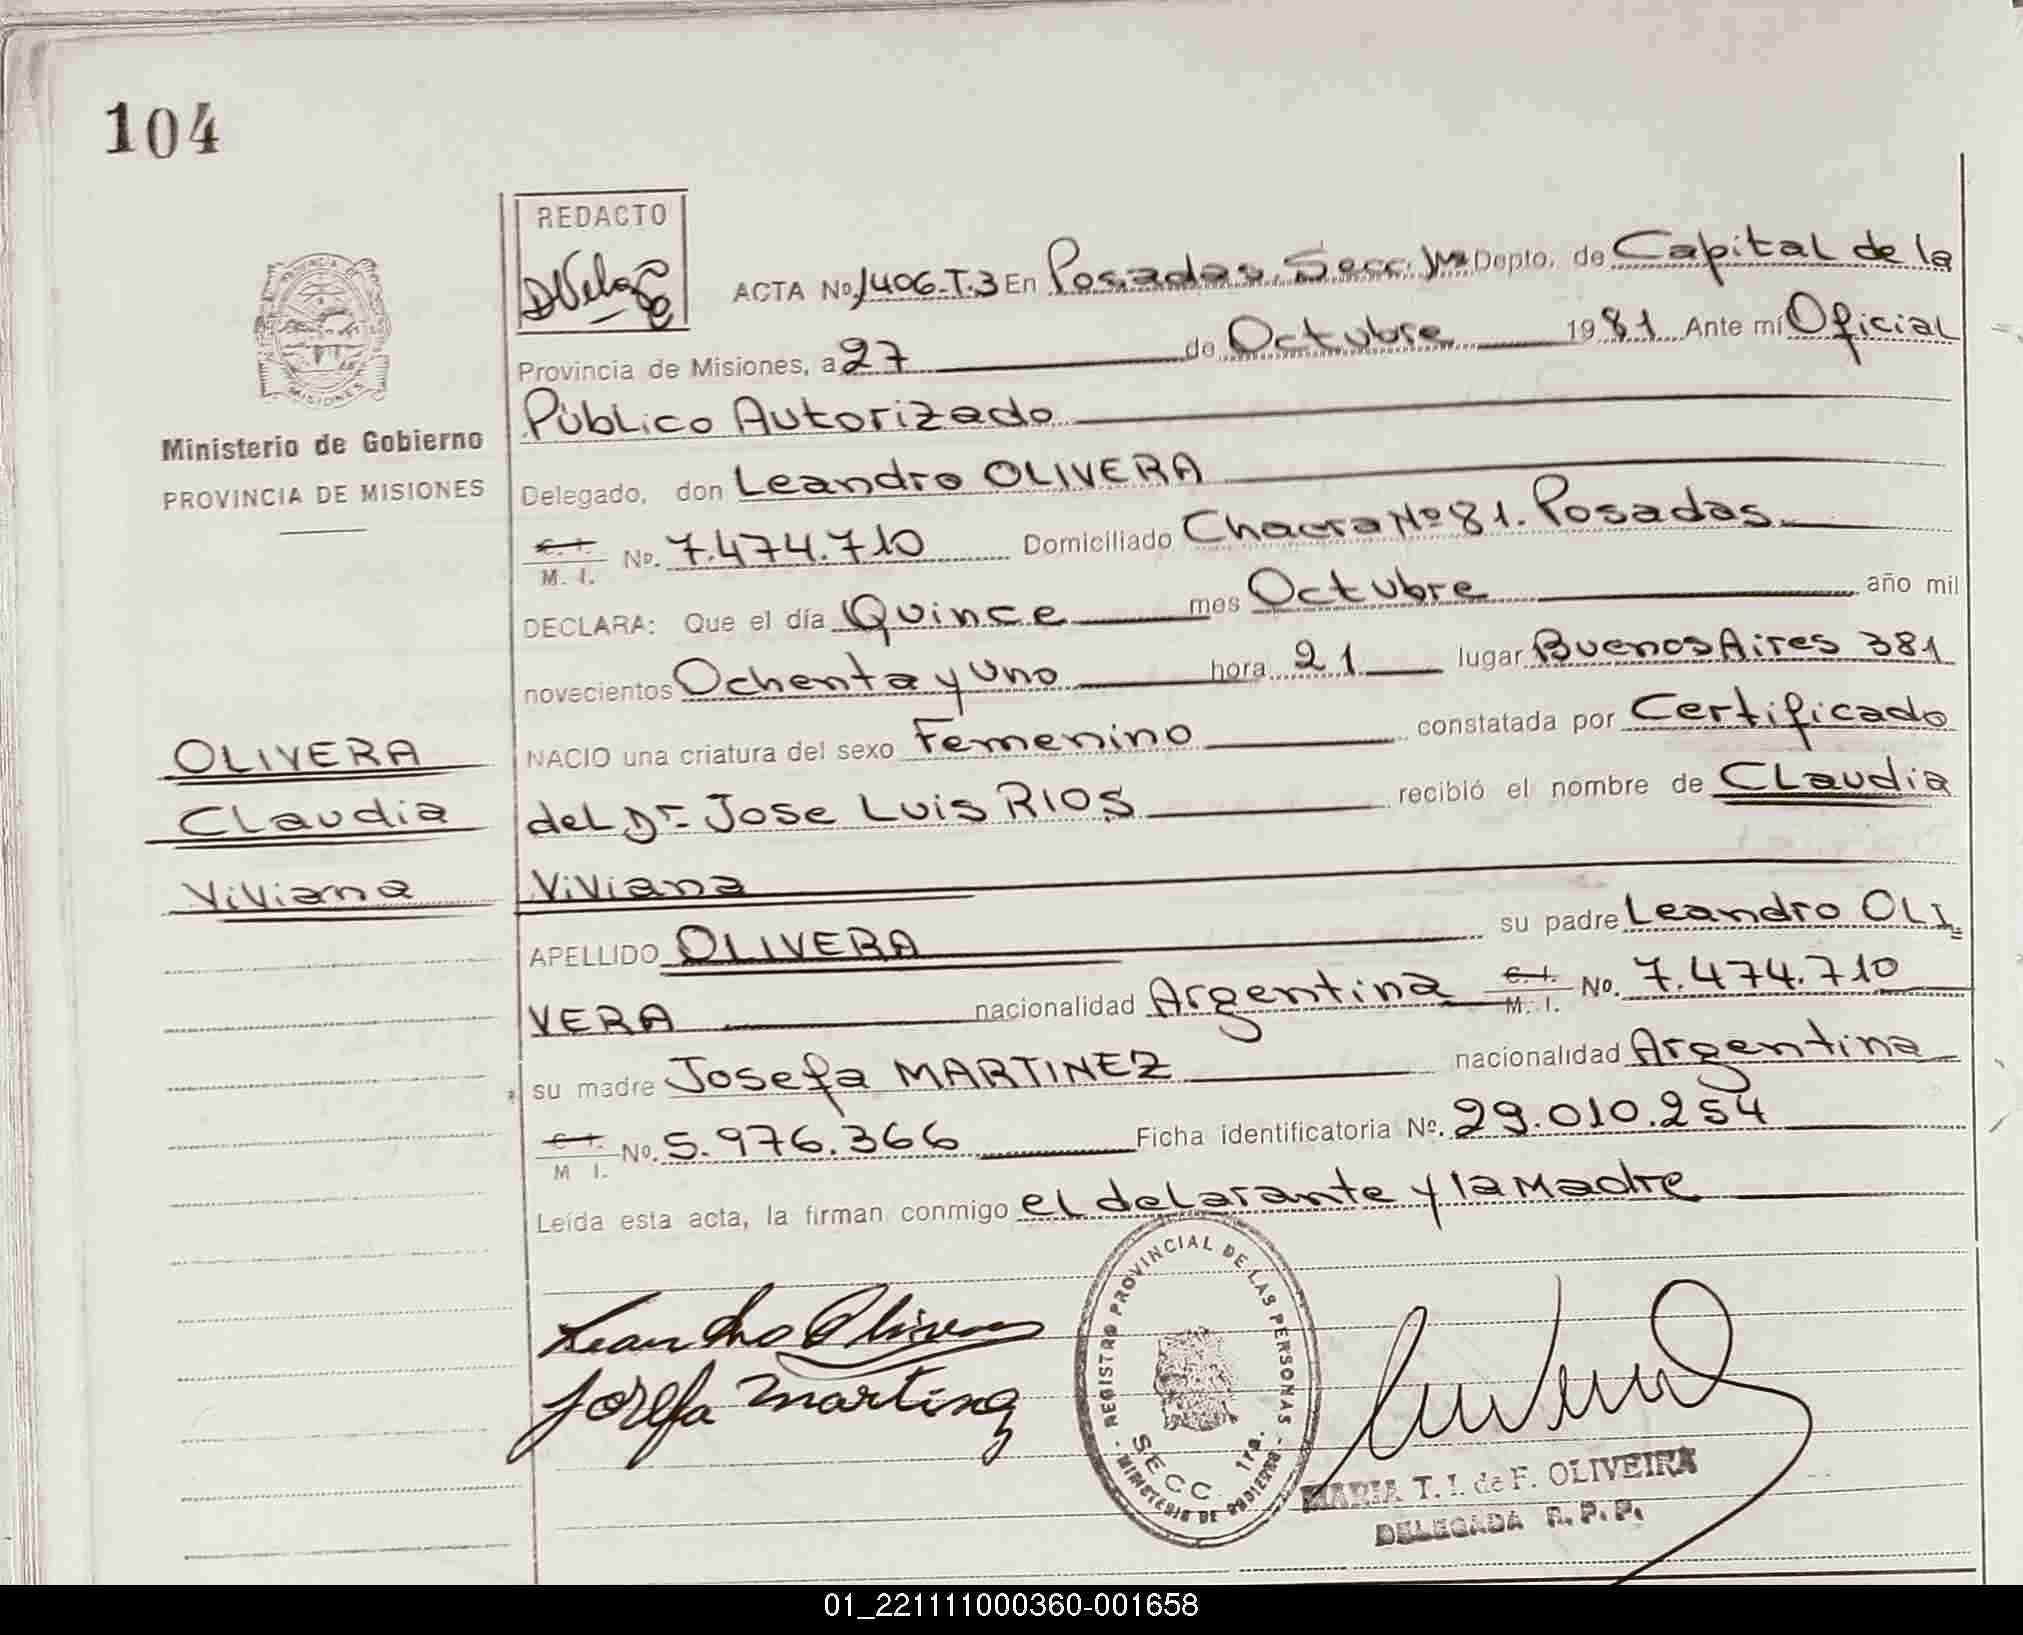 104
REDACTO
ACTA No. 1406-T.3 En Posadas, Secc. 1ra Depto. de Capital de la
Provincia de Misiones, a 27 de Octubre 1981 Ante mí Oficial
Público Autorizado
Delegado, don Leandro OLIVERA
C. I.
M. I. No. 7.474.710 Domiciliado Chacra Nº 81. Posadas
DECLARA: Que el día Quince mes Octubre año mil
novecientos Ochenta y Uno hora 21 lugar Buenos Aires 381
NACIO una criatura del sexo Femenino constatada por Certificado
del Dr. Jose Luis RIOS recibió el nombre de Claudia
Viviana
APELLIDO OLIVERA su padre Leandro OLI
VERA nacionalidad Argentina C. I. M. I. No. 7.474.710
su madre Josefa MARTINEZ nacionalidad Argentina
C. I.
M I. No. 5.976.366 Ficha identificatoria Nº. 29.010.254
Leída esta acta, la firman conmigo el delarante y la Madre
Leandro Olivera
Josefa Martinez
PROVINCIA DE MISIONES
Ministerio de Gobierno
PROVINCIA DE MISIONES
OLIVERA
Claudia
Viviana
REGISTRO PROVINCIAL DE LAS PERSONAS
SECC. 1ra.
MINISTERIO DE GOBIERNO
MARIA T. I. de F. OLIVEIRA
DELEGADA R. P. P.
01_221111000360-001658